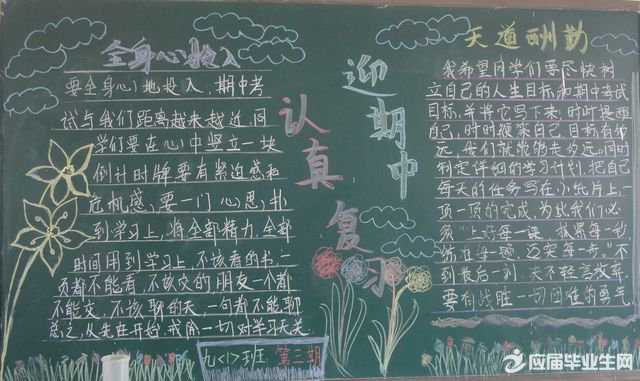 全身心投入
要全身心地投入,期中考
试与我们距离越来越近,同
学们要在心中竖立一块
倒计时牌要有紧迫感和
危机感,要一门心思,扑
到学习上,将全部精力,全部
时间用到学习上,不该看的书一
页都不能看,不该交的朋友一个都
不能交,不该聊的天,一句都不能聊
总之,从现在开始,戒除一切对学习无关
九<1>班 第三期
迎期中
认真复习
天道酬勤
我希望同学们要尽快树
立自己的人生目标和期中考试
目标,并将它写下来,时时提醒
自己,时时鞭策自己,目标有多
远,我们就能够走多远。同时
制定详细的学习计划,把自己
每天的任务写在小纸片上,一
项一项的完成,为此我们必
须"上好每一课,
每一题,迈实每一步。"不
到最后一刻 天不轻言放弃,
要有战胜一切困难的勇气
应届毕业生网